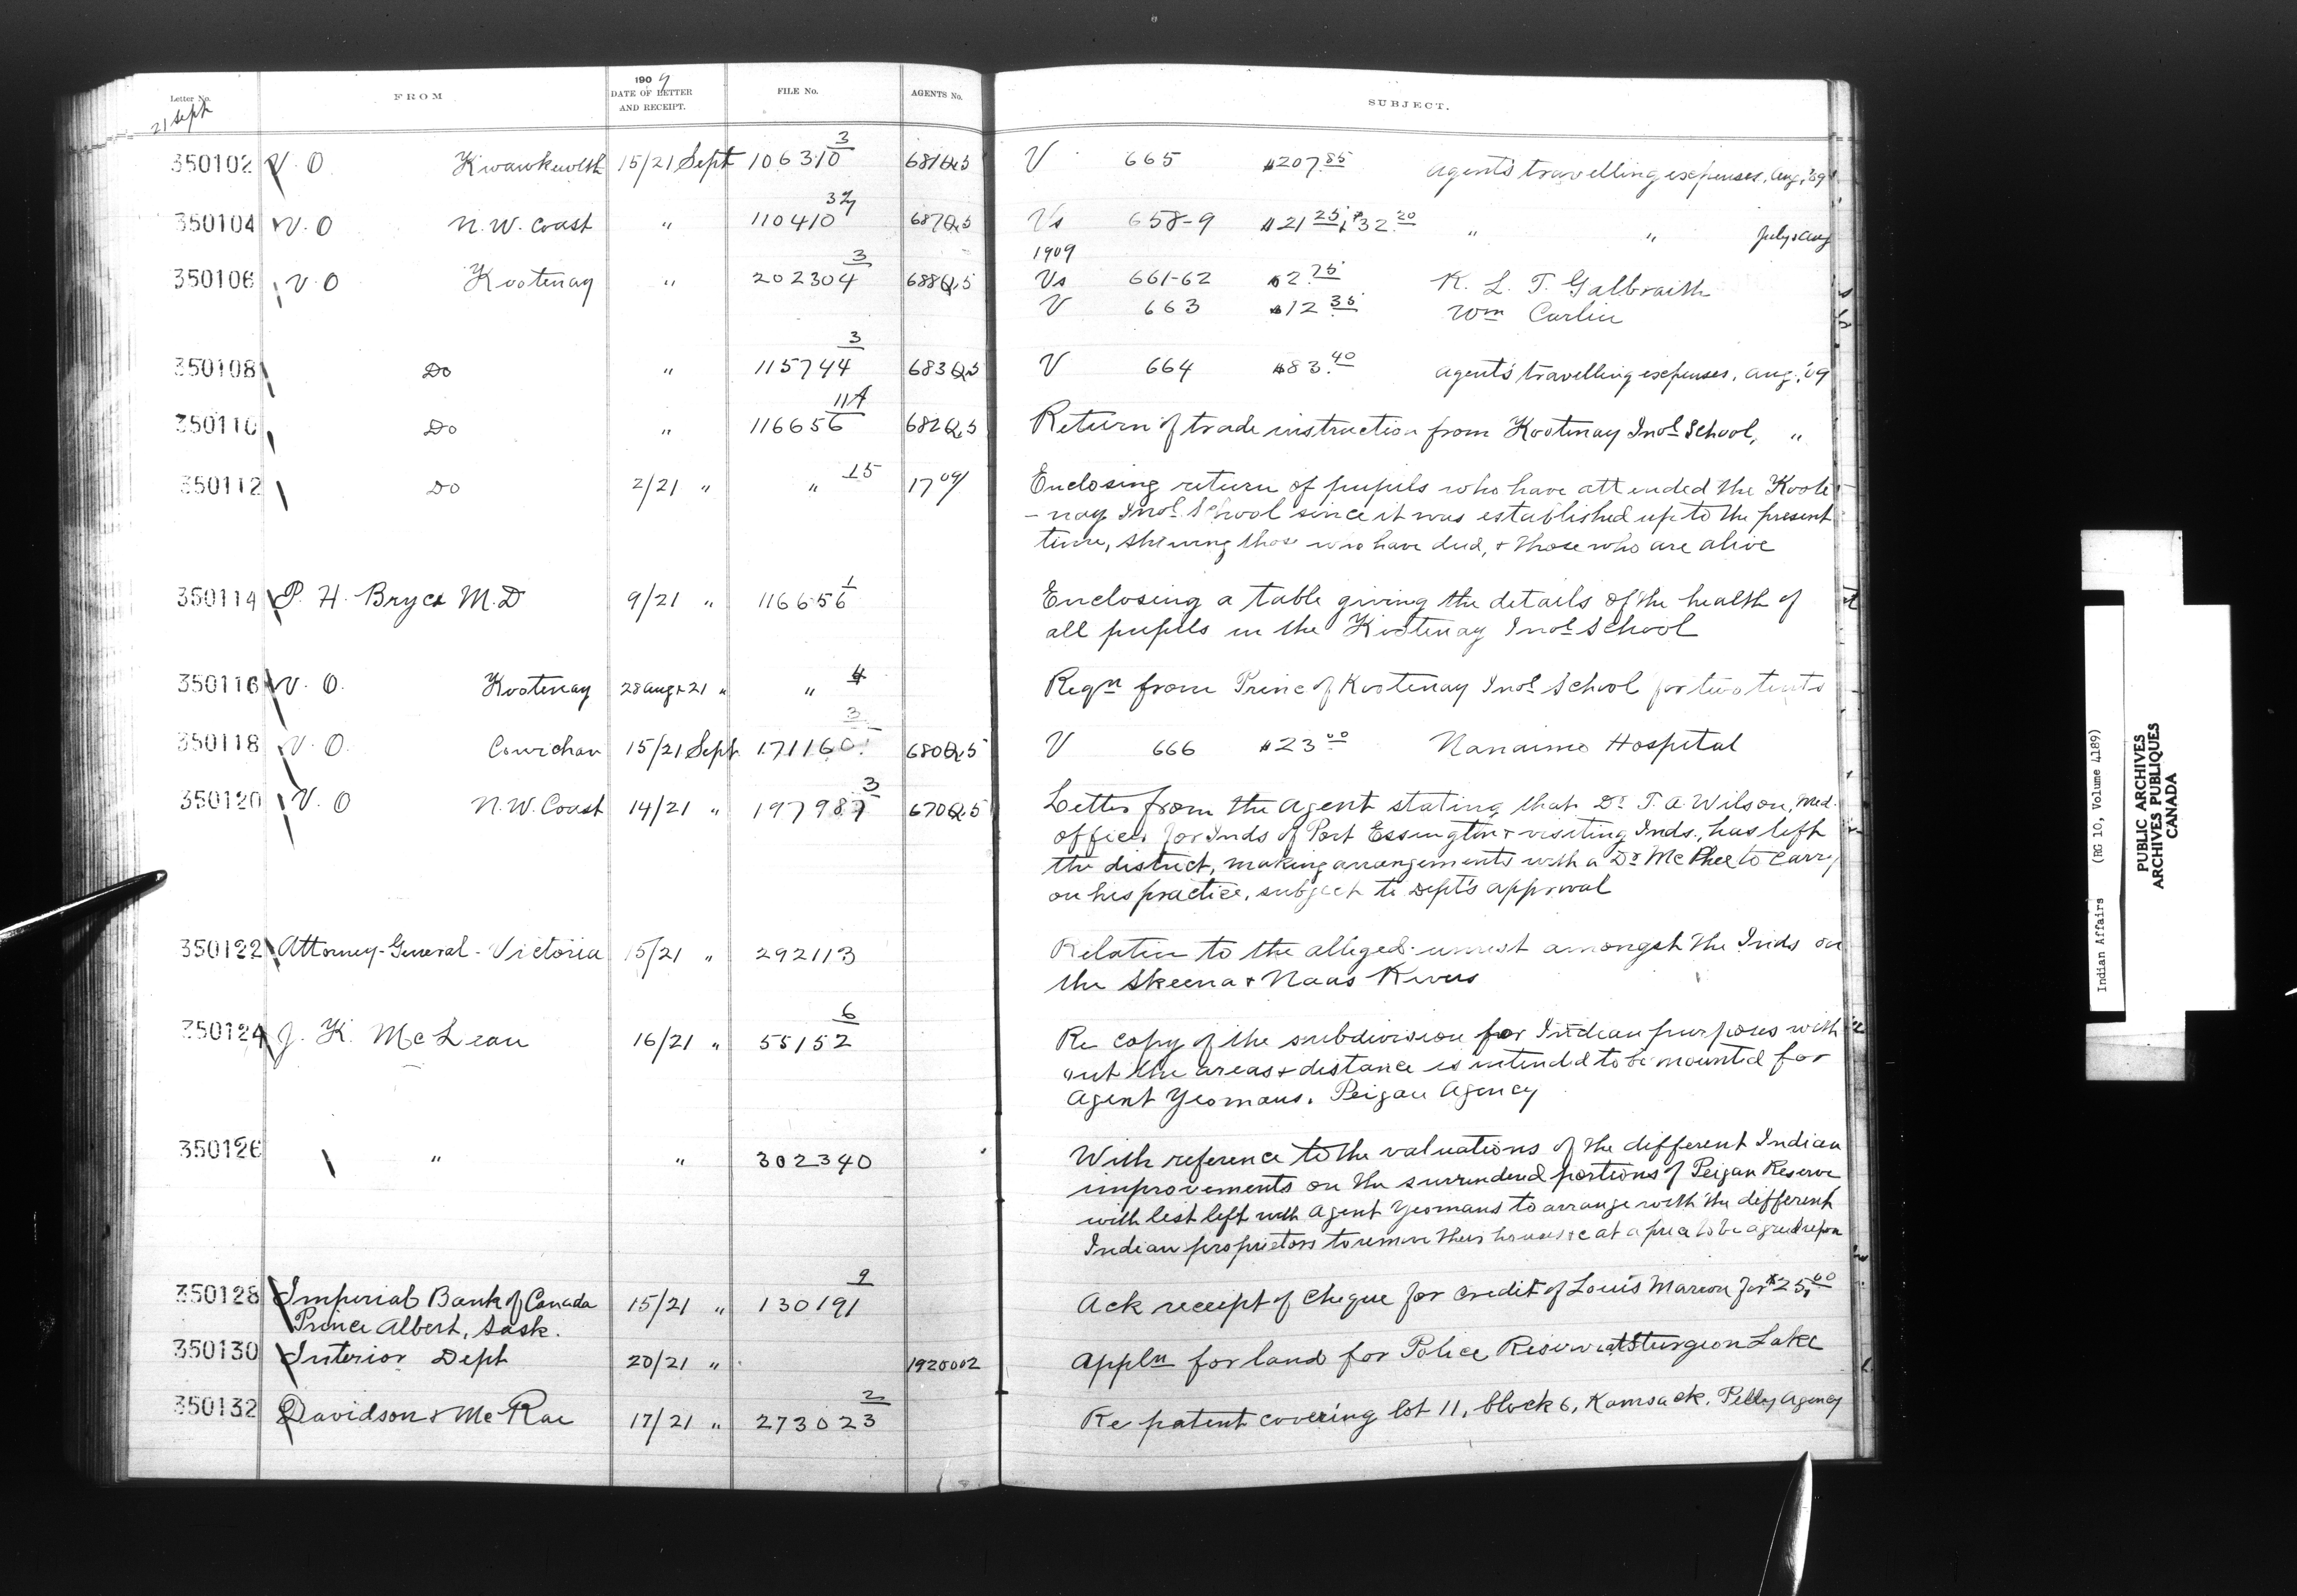 1909
Letter No. FROM DATE OF LETTER AND RECEIPT. FILE No. AGENTS No. SUBJECT.
21 Sept
350102 V. O Kwawkewlth 15/21 Sept 106310 3 681Q.5 V 665 $207.85 Agent's travelling expenses, Aug, '09
350104 V. O N. W. Coast " 110410 687Q.5 Vs 658-9 $21.25 + $32.20 " " July & Aug
1909
350106 V. O Kootenay " 202304 3 688Q.5 Vs 661-62 $2.75 R. L. T. Galbraith
V 663 $12.35 Wm Carlin
350108 Do " 115744 3 683Q.5 V 664 $83.40 Agent's travelling expenses, Aug. '09
350110 Do " 116656 11A 682Q.5 Return of trade instruction from Kootenay Indl School, "
350112 Do 2/21 " " 15 17 09/ Enclosing return of pupils who have attended the Koote
- nay Indl School since it was established up to the present
time, showing those who have died, & those who are alive
350114 P. H. Bryce M. D 9/21 " 116656 1 Enclosing a table giving the details of the health of
all pupils in the Kootenay Indl School
350116 V. O. Kootenay 28 Aug & 21 " " 4 Reqn from Princ of Kootenay Indl School for two tents
350118 V. O. Cowichan 15/21 Sept 171160 3 680Q.5 V 666 $23.00 Nanaimo Hospital
350120 V. O N. W. Coast 14/21 " 197987 3 670Q.5 Letter from the Agent stating that Dr T. A. Wilson, Med.
officer for Inds of Port Essington & visiting Inds., has left
the district, making arrangements with a Dr McPhee to carry
on his practice, subject to Dept's approval
350122 Attorney-General - Victoria 15/21 " 292113 Relative to the alleged unrest amongst the Inds on
the Skeena & Naas Rivers
350124 J. K. McLean 16/21 " 55152 6 Re copy of the subdivision for Indian purposes with
out the areas & distance is intended to be mounted for
Agent Yeomans. Peigan Agency
350126 " " 302340 With reference to the valuations of the different Indian
improvements on the surrendered portions of Peigan Reserve
with list left with Agent Yeomans to arrange with the different
Indian proprietors to remove their houses &c at a price to be agreed upon
350128 Imperial Bank of Canada 15/21 " 130191 9 Ack receipt of cheque for credit of Louis Marion for $25.00
Prince Albert, Sask.
350130 Interior Dept 20/21 " 1920002 Appln for land for Police Reserve at Sturgeon Lake
350132 Davidson & McRae 17/21 " 273023 2 Re patent covering lot 11, block 6, Kamsack, Pelly Agency
Indian Affairs (RG 10, Volume 4189)
PUBLIC ARCHIVES
ARCHIVES PUBLIQUES
CANADA